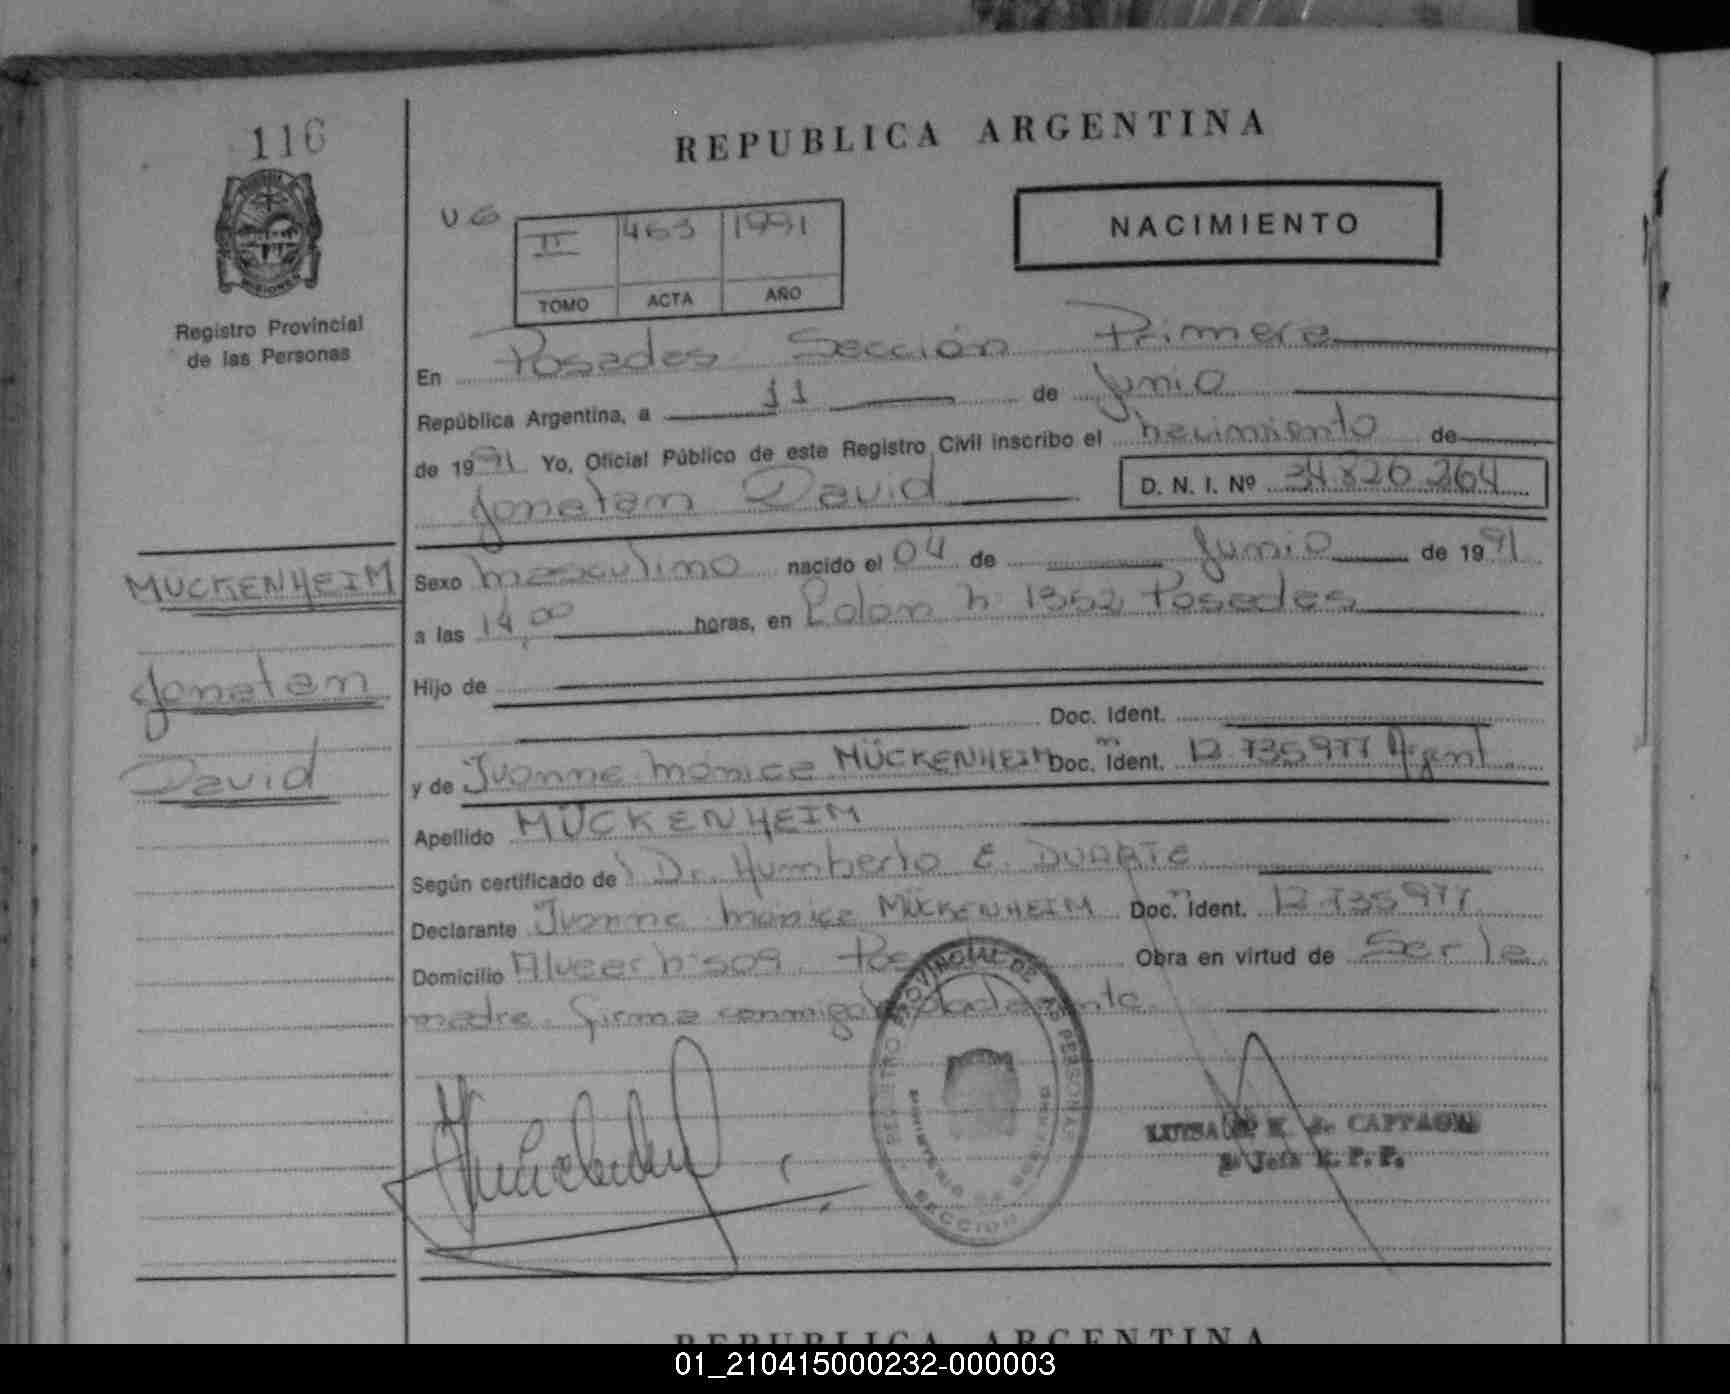 116
REPUBLICA ARGENTINA
NACIMIENTO
MISIONES
Registro Provincial
de las Personas
II 463 1991
TOMO ACTA AÑO
En Posadas Sección Primera
República Argentina, a 11 de Junio
de 1991 Yo, Oficial Público de este Registro Civil inscribo el nacimiento de
Jonatan David D. N. I. Nº 34826264
MUCKENHEIM
Jonatan
David
Sexo masculino nacido el 04 de Junio de 1991
a las 14,00 horas, en Colon n° 1352 Posadas
Hijo de
Doc. Ident.
y de Ivonne Monica MÜCKENHEIM Doc. Ident. 12.735977 Argent
Apellido MÜCKENHEIM
Según certificado de Dr. Humberto E. DUARTE
Declarante Ivonne Monica MÜCKENHEIM Doc. Ident. 12.735977
Domicilio Alvear n° 509 Obra en virtud de Ser la
madre. firma conmigo
REGISTRO PROVINCIAL DE LAS PERSONAS
MINISTERIO DE GOBIERNO
SECCION
LUISA K. de
Jefe R. P. P.
REPUBLICA ARGENTINA
01_210415000232-000003